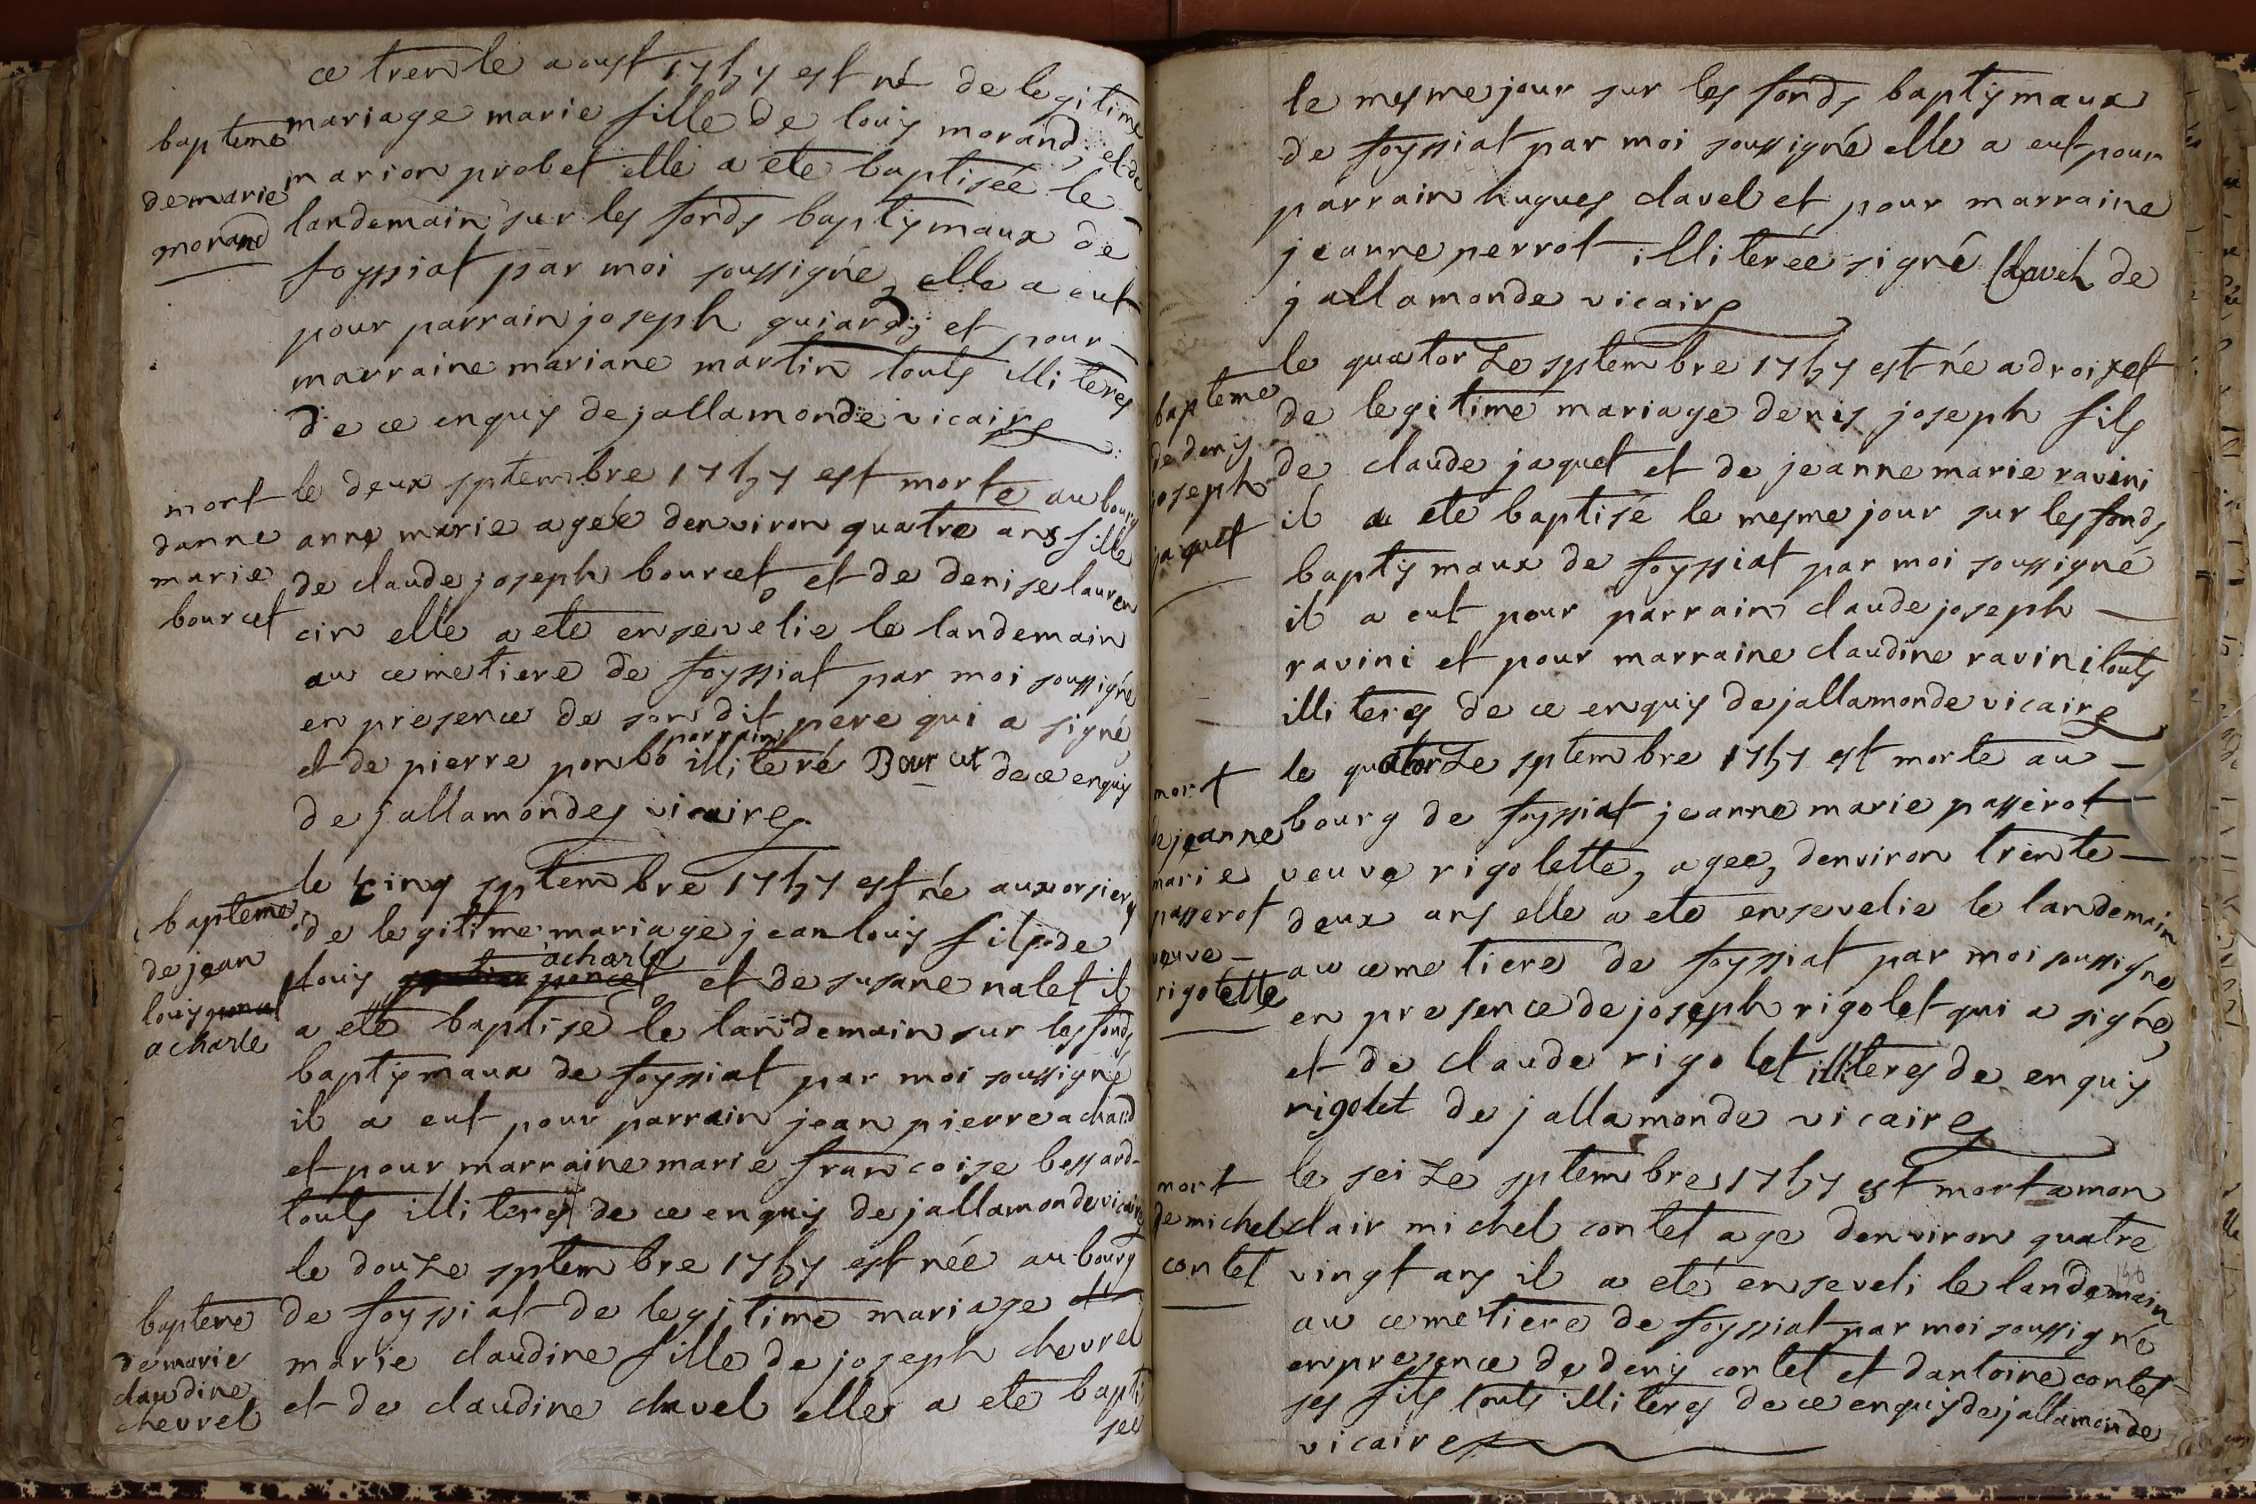 ce trente aoust 1757 est né de legitime
mariage marie fille de louis morand et de
bapteme
marion probet elle a ete baptisée le
de marie
landemain sur les fonds baptismaux de
morand
foyssiat par moi soussigné, elle a eut
pour parrain joseph guiard et pour
marraine mariane martin touts illiteres
de ce enquis dejallamonde vicaire
mort
le deux sptembre 1757 est morte au bourg
danne
anne marie agée denviron quatre ans fille
marie
de claude joseph bourcet et de denise lauren
bourcet
cin elle a ete ensevelie le landemain
au cemetiere de foyssiat par moi soussigné
en presence de son dit pere qui a signé
parrain
et de pierre ponbo illiteré Bourcet de ce enquis
dejallamondes vicaire
le cinq sptembre 1757 est né aux orsiers
bapteme
de legitime mariage jean louis fils de
de jean
acharle
louis poncet et de susane nalet il
louis poncet
a eté baptisé le landemain sur les fonds
acharle
baptismaux de foyssiat par moi soussigné
il a eut pour parrain jean pierre achard
et pour marraine marie francoise bessard
touts illiteres de ce enquis dejallamonde vicaire
le douze sptembre 1757 est née au bourg
bapteme
de foyssiat de legitime mariage
de marie
marie claudine fille de joseph chevrel
claudine
chevrel
et de claudine clavel elle a ete bapti
see
le mesme jour sur les fonds baptismaux
de foyssiat par moi soussigné elle a eut pour
parrain hugues clavel et pour marraine
jeanne perrot illiterée signé Clavel de
jallamonde vicaire
le quatorze sptembre 1757 est né a droiset
bapteme
de legitime mariage denis joseph fils
de denis
de claude jaquet et de jeanne marie ravini
joseph
il a eté baptisé le mesme jour sur les fonds
jaquet
baptismaux de foyssiat par moi soussigné
il a eut pour parrain claude joseph
ravini et pour marraine claudine ravini touts
illiteres de ce enquis dejallamonde vicaire
le quatorze sptembre 1757 est morte au
mort
bourg de foyssiat jeanne marie passerot
de jeanne
marie
veuve rigolette, agee, denviron trente
passerot
deux ans elle a ete ensevelie le landemain
veuve
au cemetiere de foyssiat par moi soussigné
rigolette
en presence de joseph rigolet qui a signé,
et de claude rigolet illiteres de enquis
rigolet dejallamonde vicaire
mort
le seize sptembre 1757 est mort a mon
de michel
clair michel contet age denviron quatre
contet
vingt ans il a eté enseveli le landemain
196
au cemetiere de foyssiat par moi soussigné
en presence de denis contet et dantoine contet
ses fils touts illiteres de ce enquis dejallamonde
vicaire